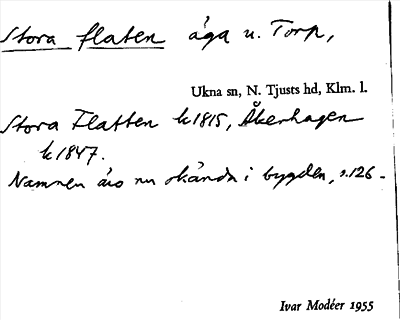 Stora flaten äga u. Torp,
Ukna sn, N. Tjusts hd, Klm. l.
Stora Flatten k 1815, Åkerhagen
k 1847.
Namnen äro nu okända i bygden, s. 126 -
Ivar Modéer 1955